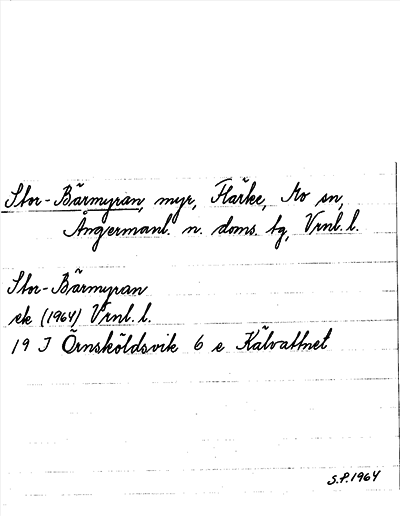 Stor-Bärmyran, myr, Flärke, Mo sn,
Ångermanl. n. doms. tg, Vrnl. l.
Stor-Bärmyran
ek (1964) Vrnl. l.
19 J Örnsköldsvik 6 e Kälvattnet
S.P. 1964